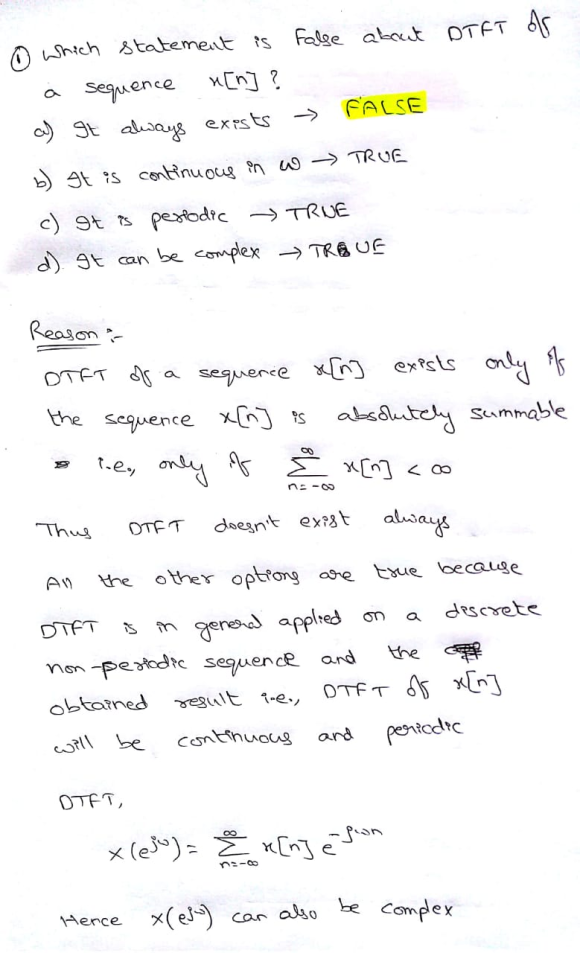 ① Which statement is False about DTFT of
a sequence x[n] ?
a) It always exists → FALSE
b) It is continuous in ω → TRUE
c) It is periodic → TRUE
d). It can be complex → TRUE
Reason :-
DTFT of a sequence x[n] exists only if
the sequence x[n] is absolutely summable
i.e., only if ∞ Σ n=-∞ x[n] < ∞
Thus DTFT doesn't exist always
All the other options are true because
DTFT is in general applied on a discrete
non-periodic sequence and the
obtained result i.e., DTFT of x[n]
will be continuous and periodic
DTFT,
X(e^jω) = ∞ Σ n=-∞ x[n] e^-jωn
Hence X(e^jω) can also be complex